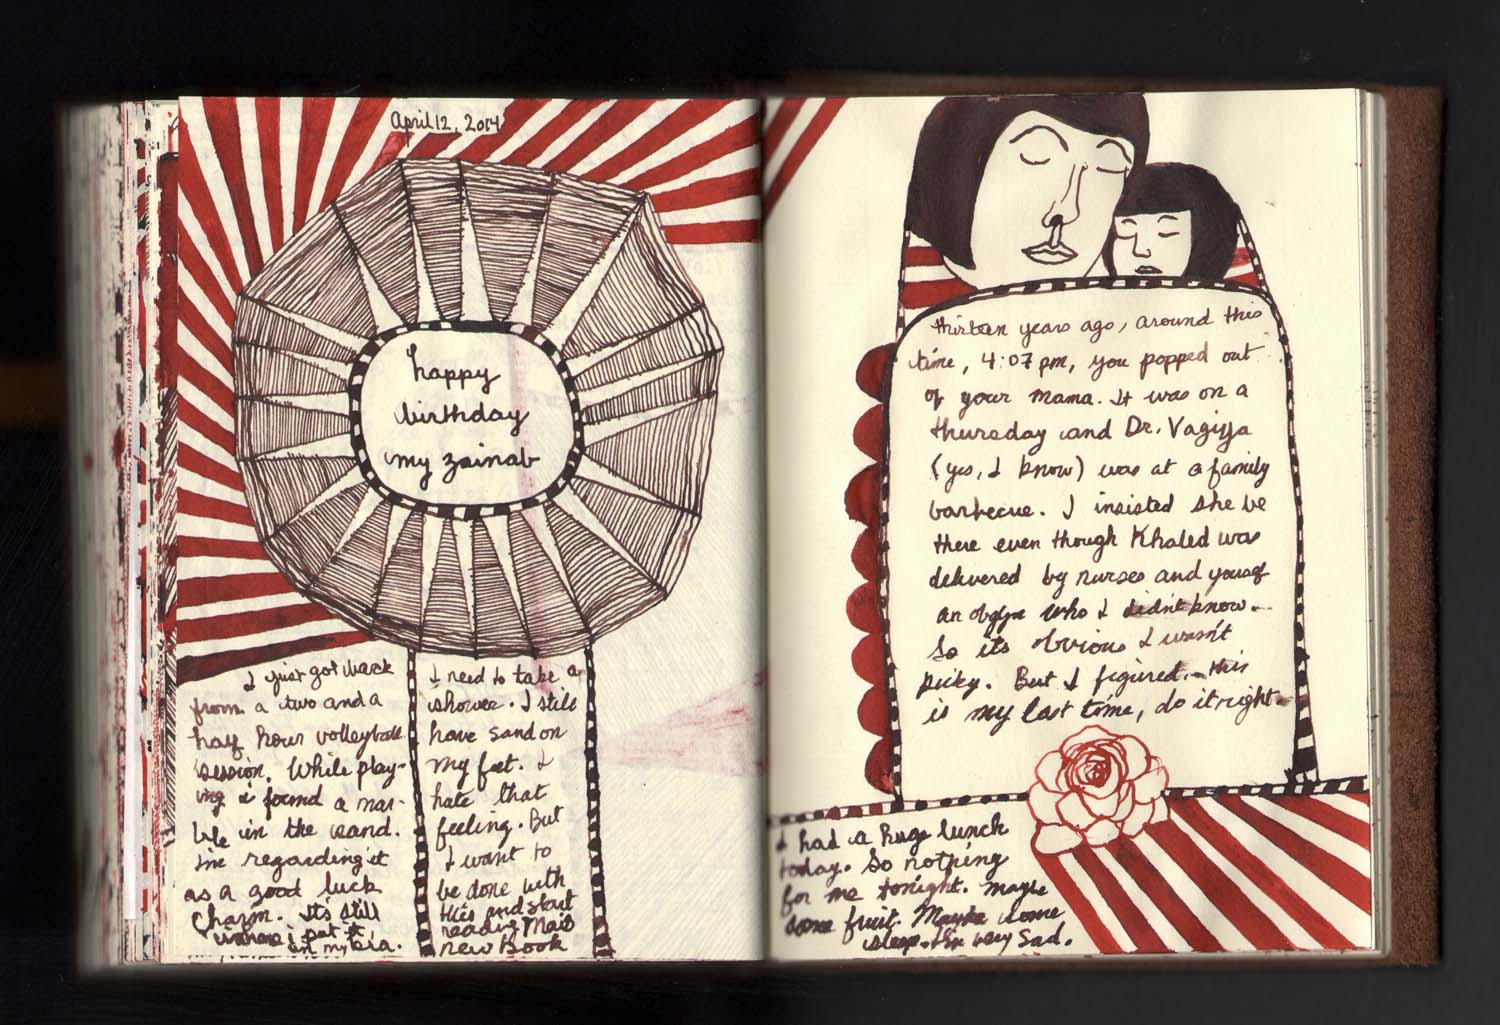 April 12, 2014
happy
birthday
my zainab
I just got back
from a two and a
half hour volleyball
session. While play-
ing i found a mar-
ble in the sand.
I'm regarding it
as a good luck
Charm. It's still
i put it
in my bra.
I need to take a
shower. I still
have sand on
my feet. I
hate that
feeling. But
I want to
be done with
this and start
reading Mai's
new Book
thirteen years ago, around this
time, 4:07 pm, you popped out
of your mama. It was on a
thursday and Dr. Vagiyja
(yes, I know) was at a family
barbecue. I insisted she be
there even though Khaled was
delivered by nurses and yousef
an obgyn who I didn't know.
So its obvious I wasn't
picky. But I figured.. this
is my last time, do it right.
I had a huge lunch
today. So nothing
for me tonight. Maybe
some fruit. Maybe some
sleep. I'm very sad.